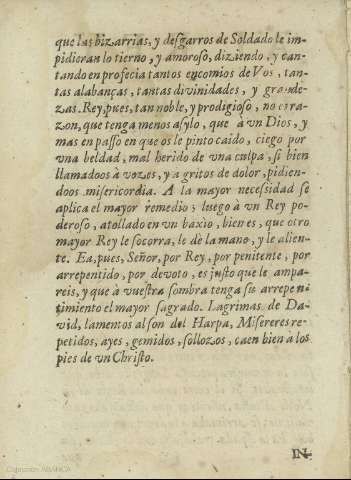 que las bizarrias, y desgarros de Soldado le im-
pidieran lo tierno, y amoroso, diziendo, y can-
tando en profecia tantos encomios de Vos, tan-
tas alabanças, tantas divinidades, y grande-
zas. Rey, pues, tan noble, y prodigioso, no es ra-
zon, que tenga menos asylo, que à vn Dios, y
mas en passo en que os le pinto caido, ciego por
vna beldad, mal herido de vna culpa, si bien
llamadoos à vozes, y a gritos de dolor, pidien-
doos misericordia. A la mayor necessidad se
aplica el mayor remedio; luego à vn Rey po-
deroso, atollado en vn baxio, bien es, que otro
mayor Rey le socorra, le dè la mano, y le alien-
te. Ea, pues, Señor, por Rey, por penitente, por
arrepentido, por devoto, es justo que le ampa-
reis, y que à vuestra sombra tenga su arrepen-
timiento el mayor sagrado. Lagrimas de Da-
vid, lamentos al son del Harpa, Misereres re-
petidos, ayes, gemidos, sollozos, caen bien a los
pies de vn Christo.
IN-
Colección ABANCA